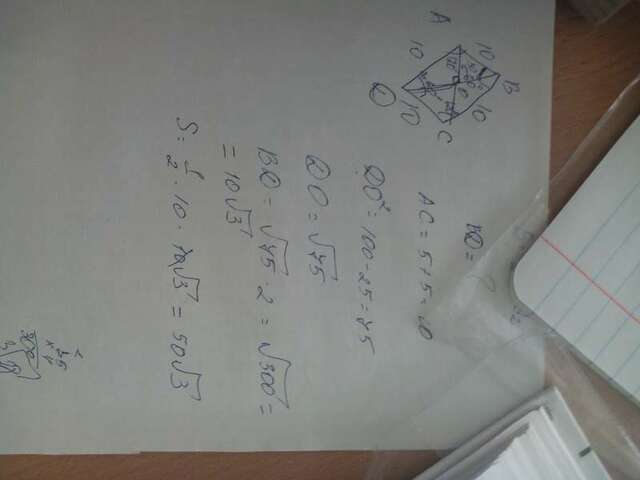 A
10
10
B
10
10
D
C
AC = 5 + 5 = 10
DO² = 100 - 25 = 75
DO = √75
BD = √75 · 2 = √300 =
= 10√3
S = 1/2 · 10 · 10√3 = 50√3
300